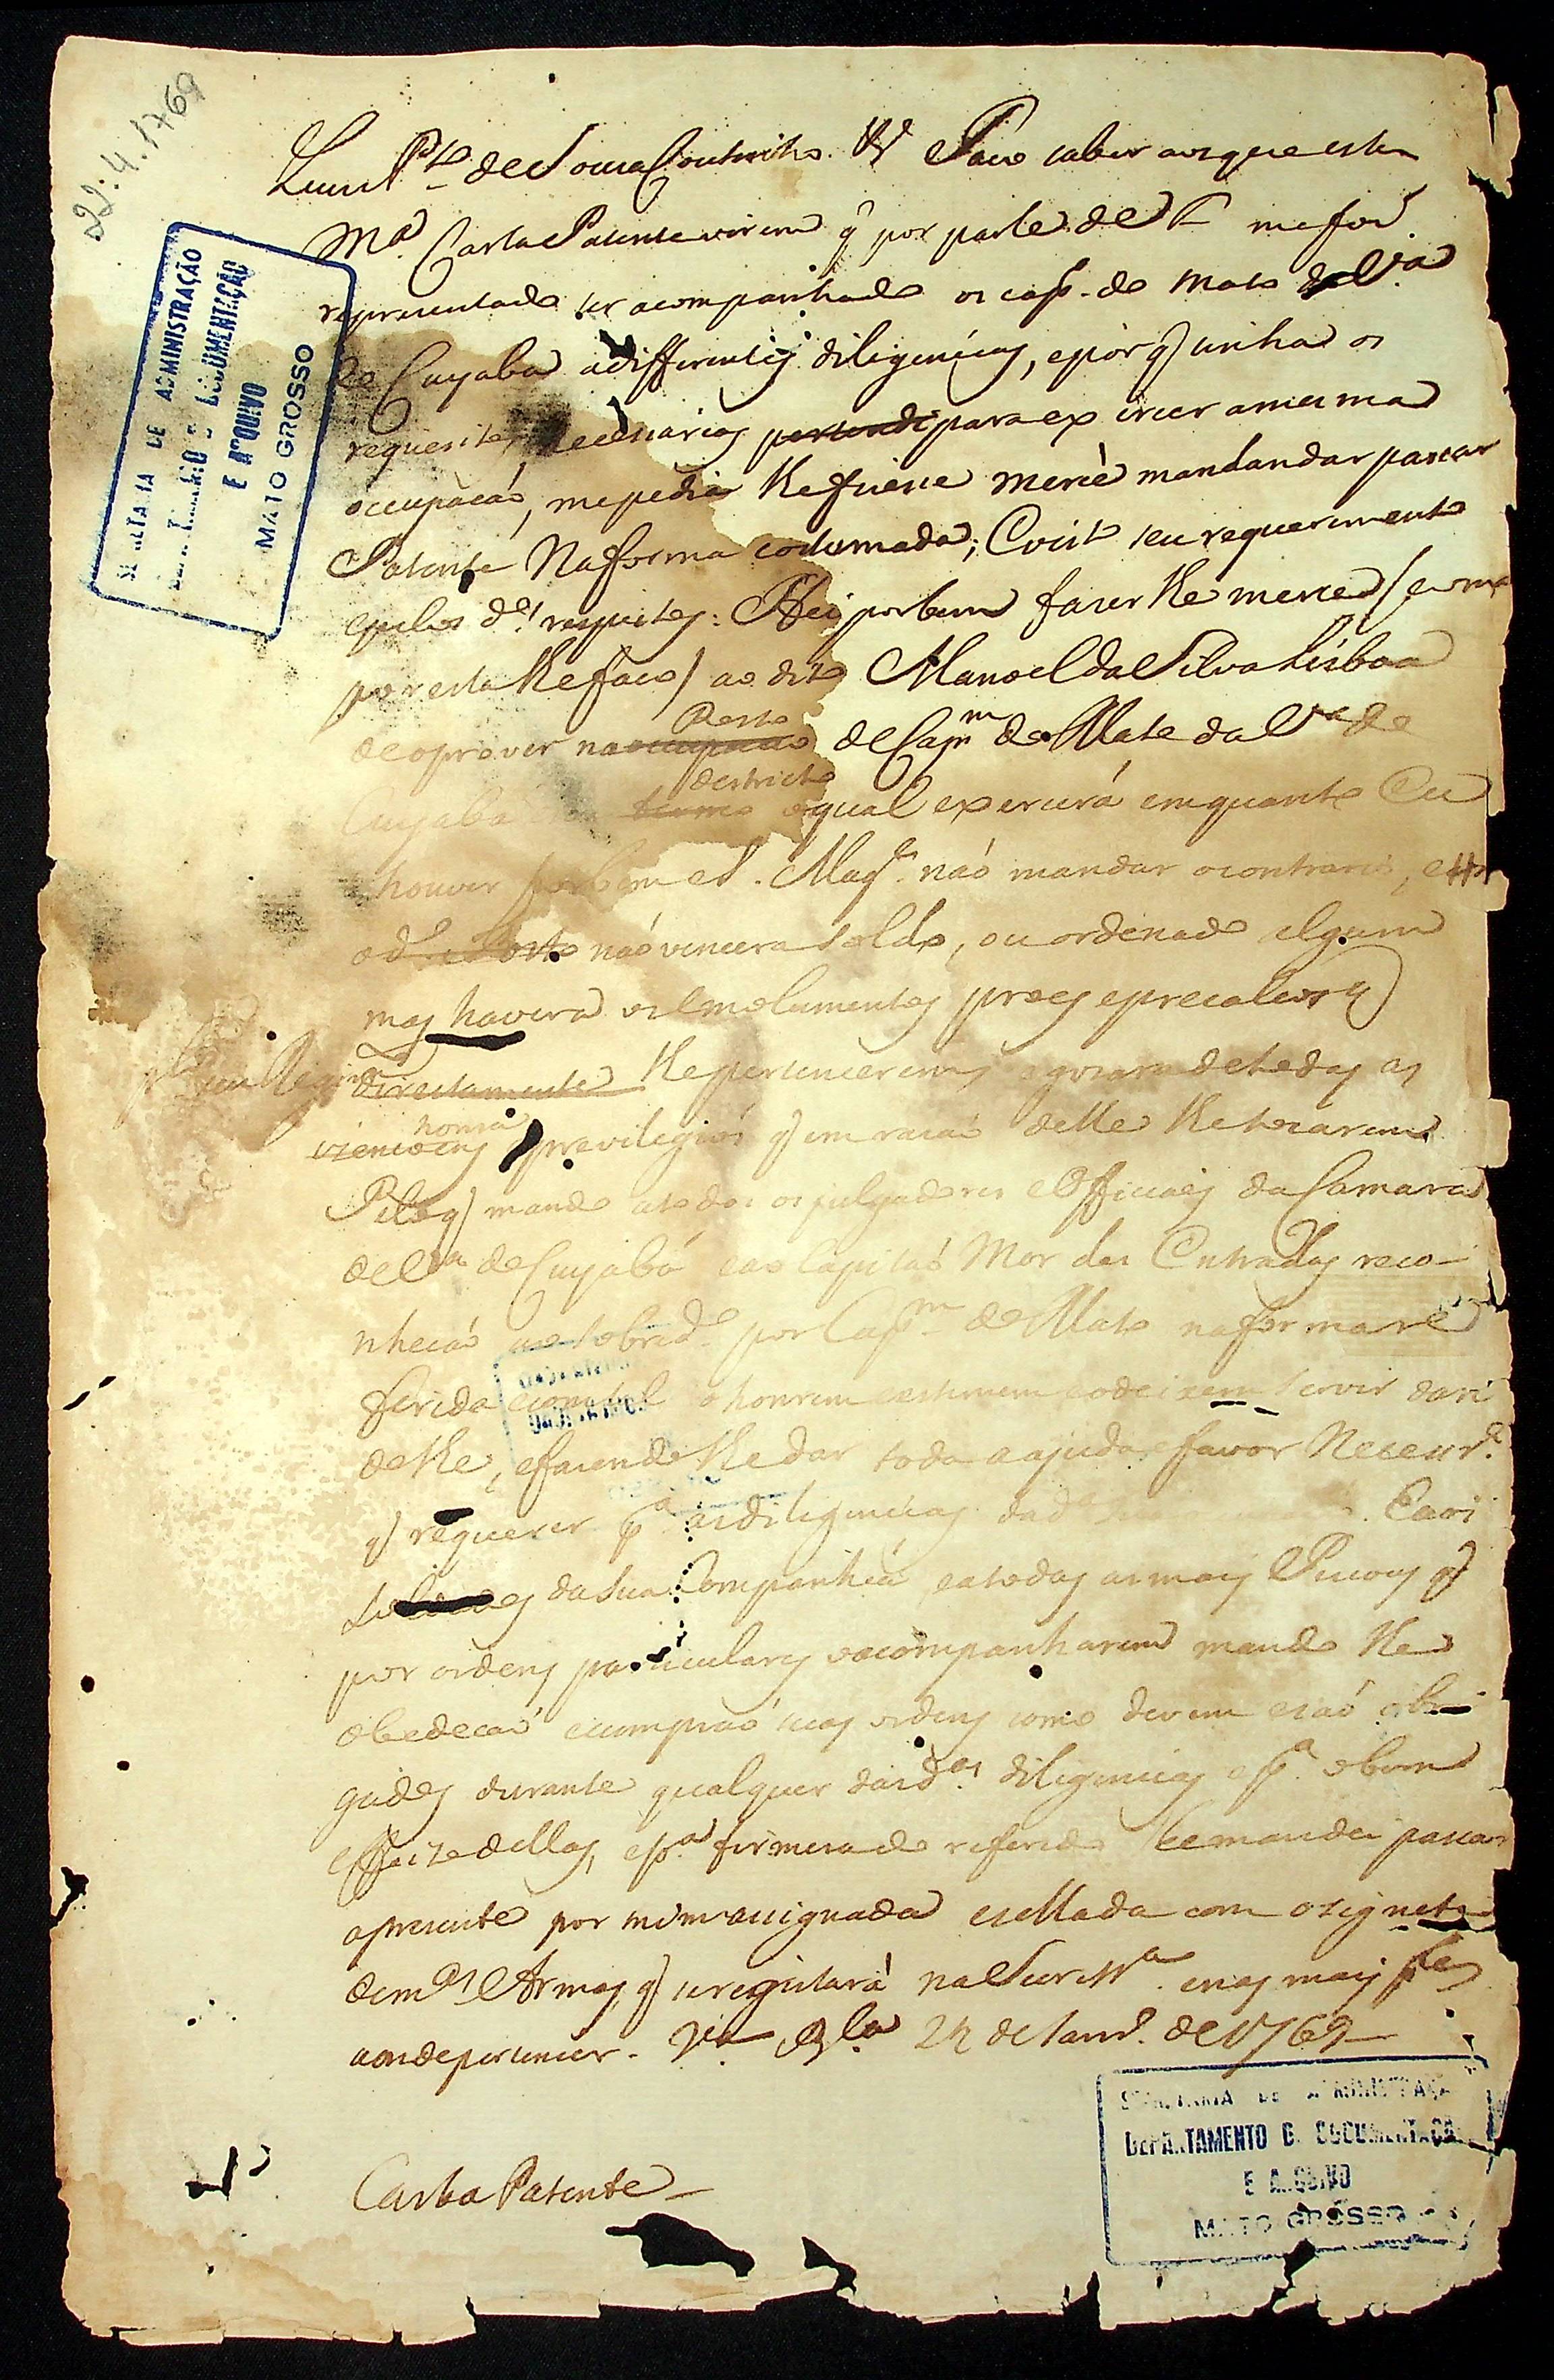 22.4.1769
Luis P.to de Souza Coutinho. & Faço saber aos que esta
M.a Carta Patente virem q̃ por parte de F me foi
representado ter acompanhado os cap. do Mato da V.a
do Cuyaba a differentes diligencias, e por q̃ tinha os
requesitos necessarios para exercer a mesma
occupação, me pedia lhe fizesse mercê mandar passar
Patente na forma costumada; E visto seu requerimento
e pelos d.os respeitos: Hei por bem fazer lhe merce (como
por esta lhe faço) ao dito Manoel da Silva Lisboa
Posto
de o prover na occupação de Cap.m do Mato da V.a de
destricto
Cuyaba termo o qual exercerá emquanto Eu
houver por bem e S. Mag.e não mandar o contrario, e
o d.o Posto não vencera soldo, ou ordenado algum
mas havera os emolumentos proes e precalsos q̃
directamente lhe pertencerem e gozara de todas as
honra
izençoens previlegios q̃ em razão delle lhe tocarem.
Pelo q̃ mando a todos os julgadores e Officiaes da Camara
de V.a do Cuyabá e ao Capitão Mor das Entradas reco-
nheção ao sobred.o por Cap.m do Mato na forma re
ferida e como tal o honrem estimem e o deixem servir
e fazendo lhe dar toda a ajuda e favor Necessr.o
q̃ requerer p.a as diligencias Eaos
da sua Companhia e a todas as mais Pessoas q̃
por ordens particulares o acompanharem mando lhe
obedeção e cumprão suas ordens como devem e são obri
gados durante qualquer das d.as diligencias e p.a o bom
effeito dellas, e p.a firmeza do referido lhe mandei passar
a presente por mim assignada e sellada com o signete
de m.as Armas, q̃ se registará na Secret.a e nas mais p.tes
aonde pertencer. V.a B.la 22 de de 1769
Carta Patente
SECRETARIA DE ADMINISTRAÇÃO
DEPARTAMENTO DE DOCUMENTAÇÃO
E ARQUIVO
MATO GROSSO
SECRETARIA DE ADMINISTRAÇÃO
DEPARTAMENTO DE DOCUMENTAÇÃO
E ARQUIVO
MATO GROSSO